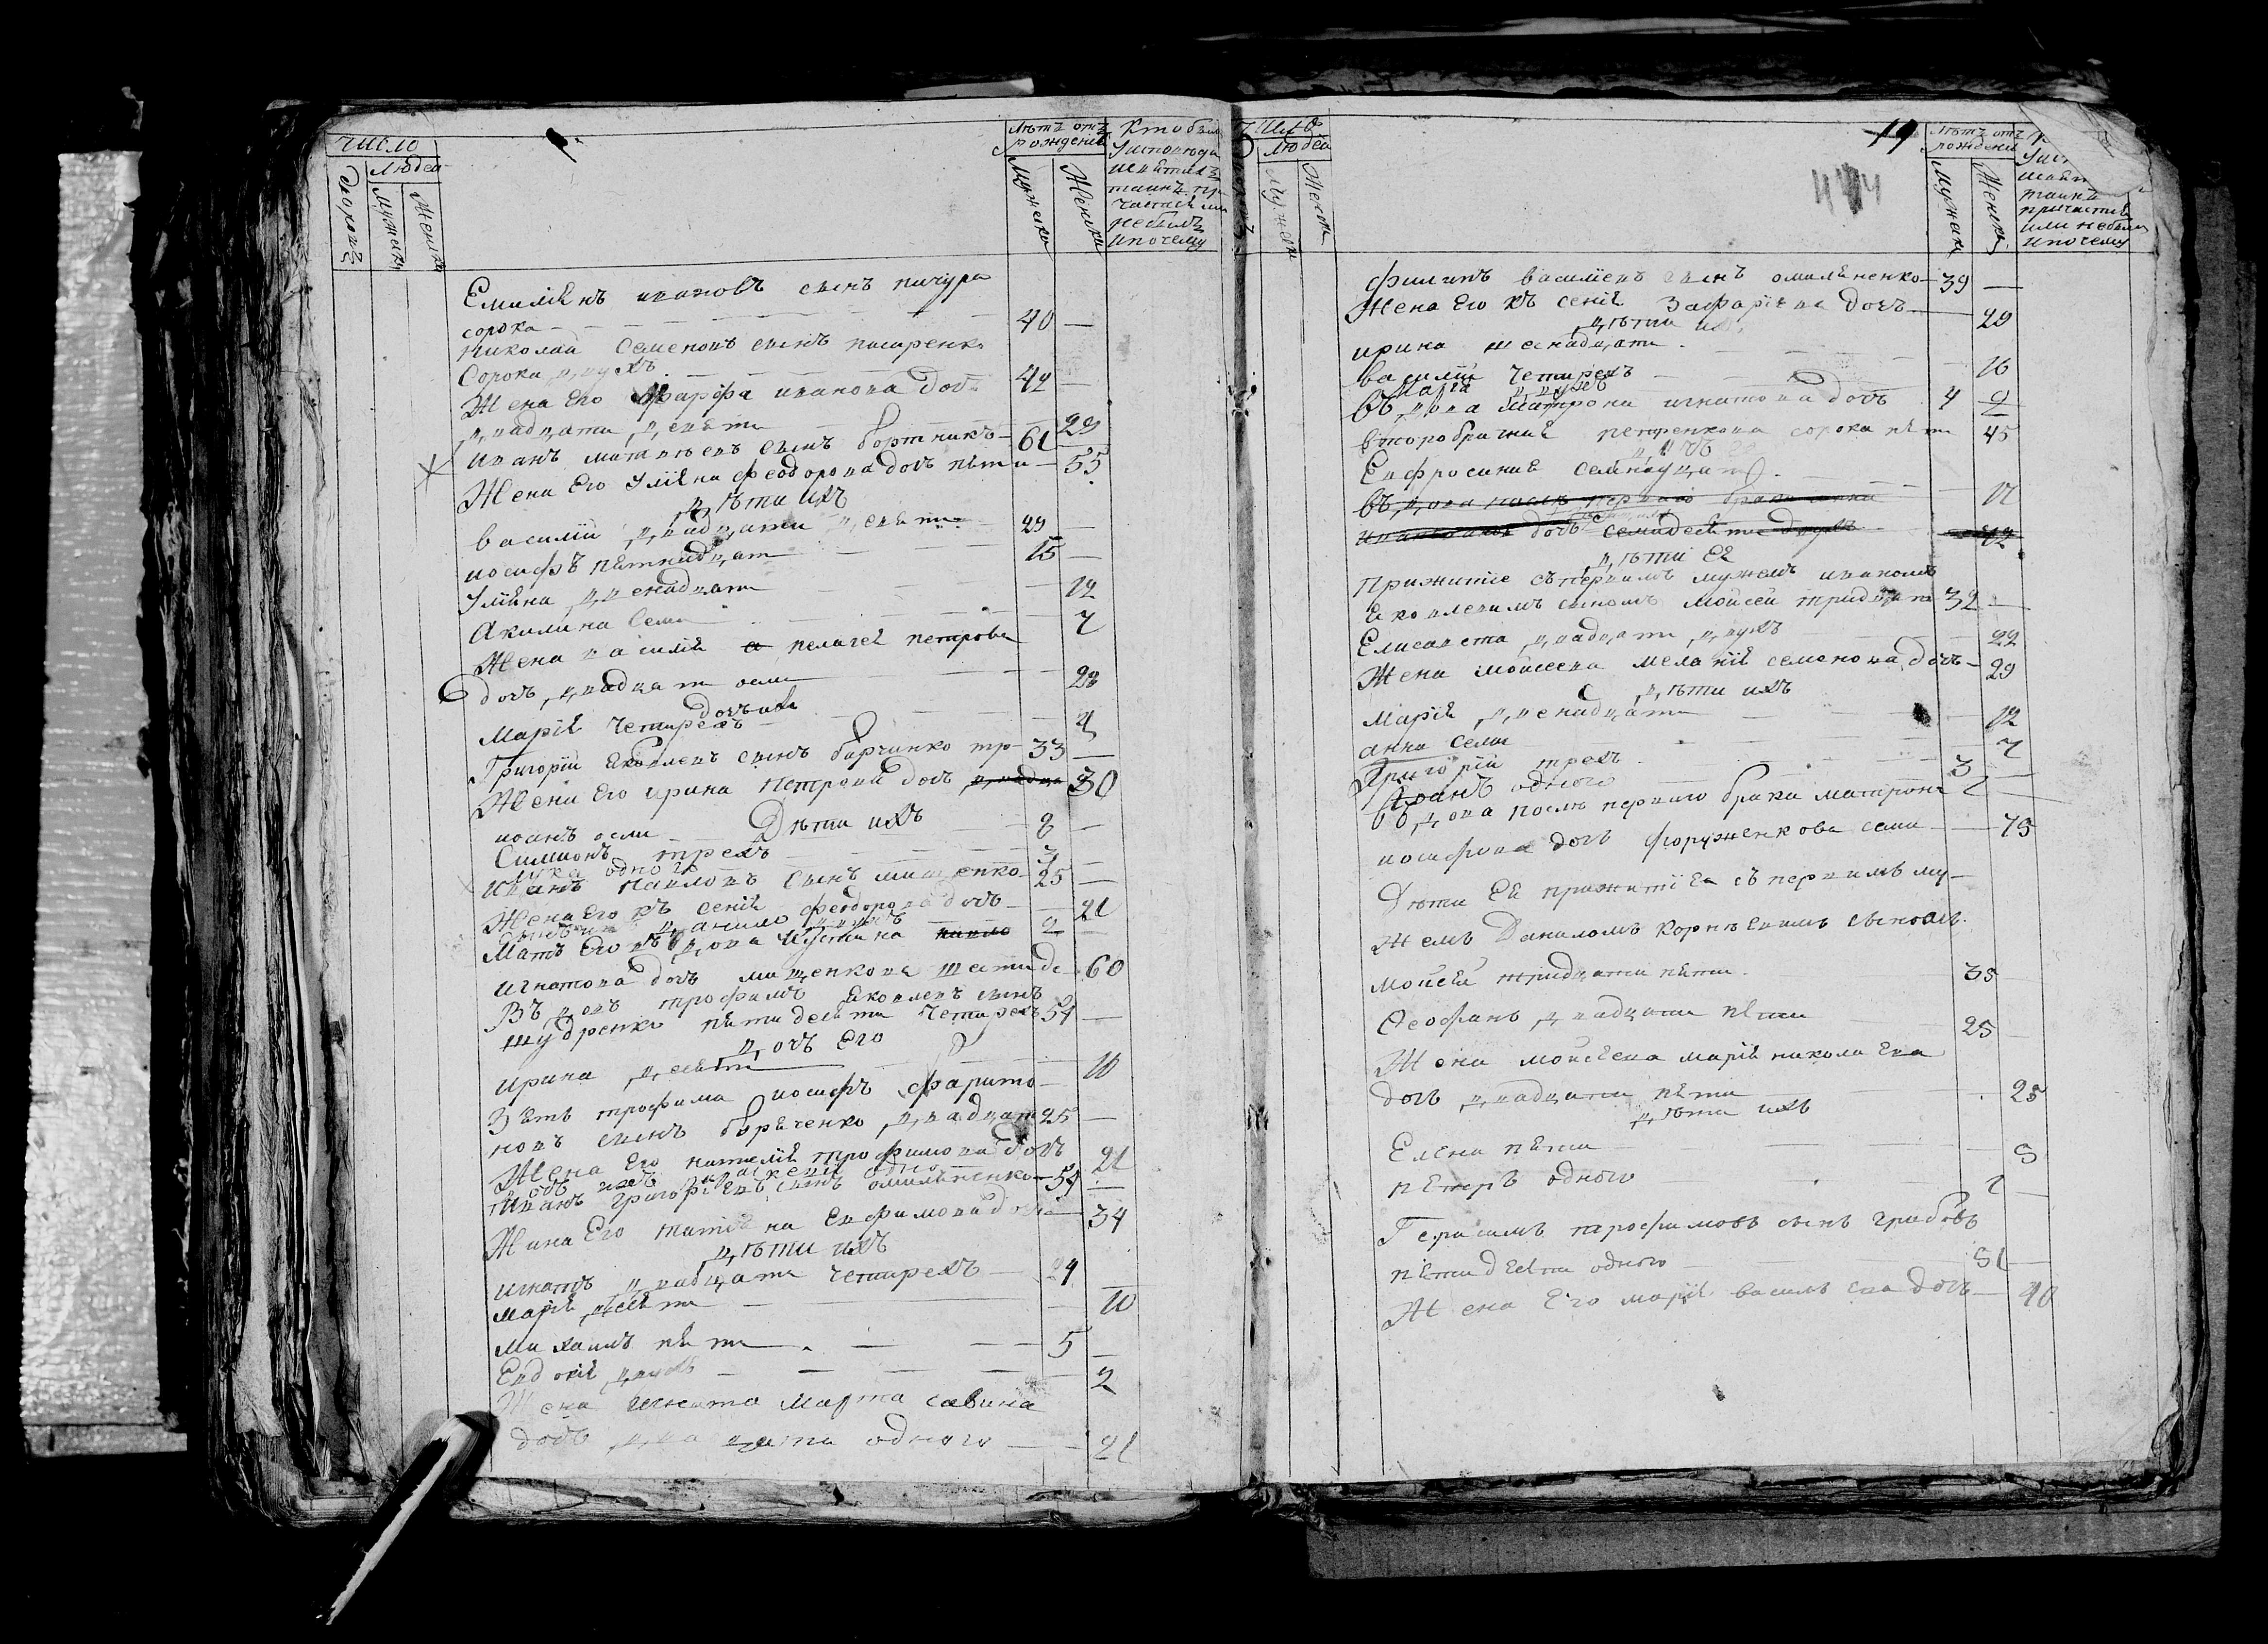 число
людей
дворовъ
мужеска
женска
лѣтъ отъ
рожденія
мужеска
женска
Кто былъ
у исповѣди
и святыхъ
таинъ при
частія или
не былъ
и почему
Емиліянъ ивановъ сынъ пичура
сорока 40
николай Семеновъ сынъ писаренко
Сорока двухъ 42
Жена Его ивановa дочь
двадцати девяти 29
иванъ матвѣевъ сынъ бортникъ 61
Жена Его Уліяна феодорова дочь пяти 55
дѣти ихъ
василій двадцати девяти 29
иосифъ пятнадцати 15
Уліяна двенадцати 12
Акилина Семи 7
Жена василія пелагея петрова
дочь двадцати осми 28
дочь ихъ
марія Четирехъ 4
Григорій Яковлевъ сынъ тр 33
Жена Его ирина петрова дочь 30
Дѣти ихъ
иоанъ осми 8
Симионъ трехъ 3
лука одного
иванъ павловъ сынъ мищенко 25
Жена Его ксенія феодорова дочь 21
двухъ 2
Мать Его вдова Иустина
игнатова дочь мищенкова шестиде 60
Вдовъ трофимъ Яковлевъ сынъ
шудренко пятидесяти Четирехъ 54
дочь Его
ирина десяти 10
Зять трофима иосифъ фарито
новъ сынъ двадцати 25
Жена Его наталія трофимова дочь 21
дочь ихъ одного
иванъ григоріевъ сынъ омиляненко 54
Жена Его татіяна Евфимова дочь 34
дѣти ихъ
игнатъ двадцати Четирехъ 24
марія десяти 10
михаилъ пяти 5
Евдокія двухъ 2
Жена игната Марта савина
дочь двадцати одного 21
число
людей
мужеска
женска
19
444
лѣтъ отъ
рожденія
мужеска
женска
таинъ
причастія
или не былъ
и почему
филипъ василіевъ сынъ омиляненко 39
Жена Его ксенія Захаріева дочь 29
дѣти ихъ
ирина шеснадцати 16
василій Четирехъ 4
марія двухъ 2
вдова Матрона игнатова дочь
второбрачная петренкова сорока пяти 45
дочь
Евфросинія Семнадцати 17
вдова послѣ перваго брака анна
дочь семидесяти двухъ 72
дѣти Ея
Прижитіе съ первимъ мужемъ иваномъ
Яковлевимъ сыномъ Мойсей тридцати 32
Елисавета двадцати двухъ 22
Жена мойсеева меланія семенова дочь 29
дѣти ихъ
Марія двенадцати 12
анна Семи 7
Григорій трехъ 3
Иоанъ одного 1
Вдова послѣ перваго брака матрона
иосифова дочь форуженкова семи 75
Дѣти Ея прижитіе съ первимъ му
жемъ Даниломъ Корнѣевимъ сыномъ
мойсей тридцати пяти 35
Феофанъ двадцати пяти 25
Жена мойсеева марія николаева
дочь двадцати пяти 25
дѣти ихъ
Елена пяти 5
петръ одного 1
Герасимъ трофимовъ сынъ грибовъ
пятидесяти одного 51
Жена Его марія васильева дочь 40